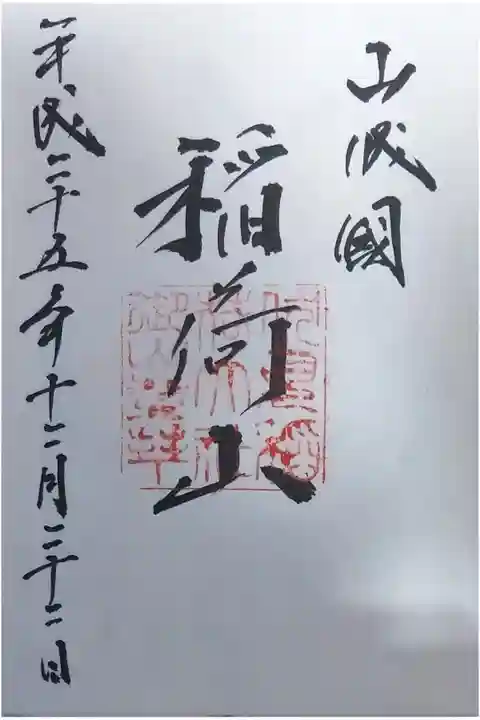 山城國
稲荷山
平成二十五年十二月二十二日